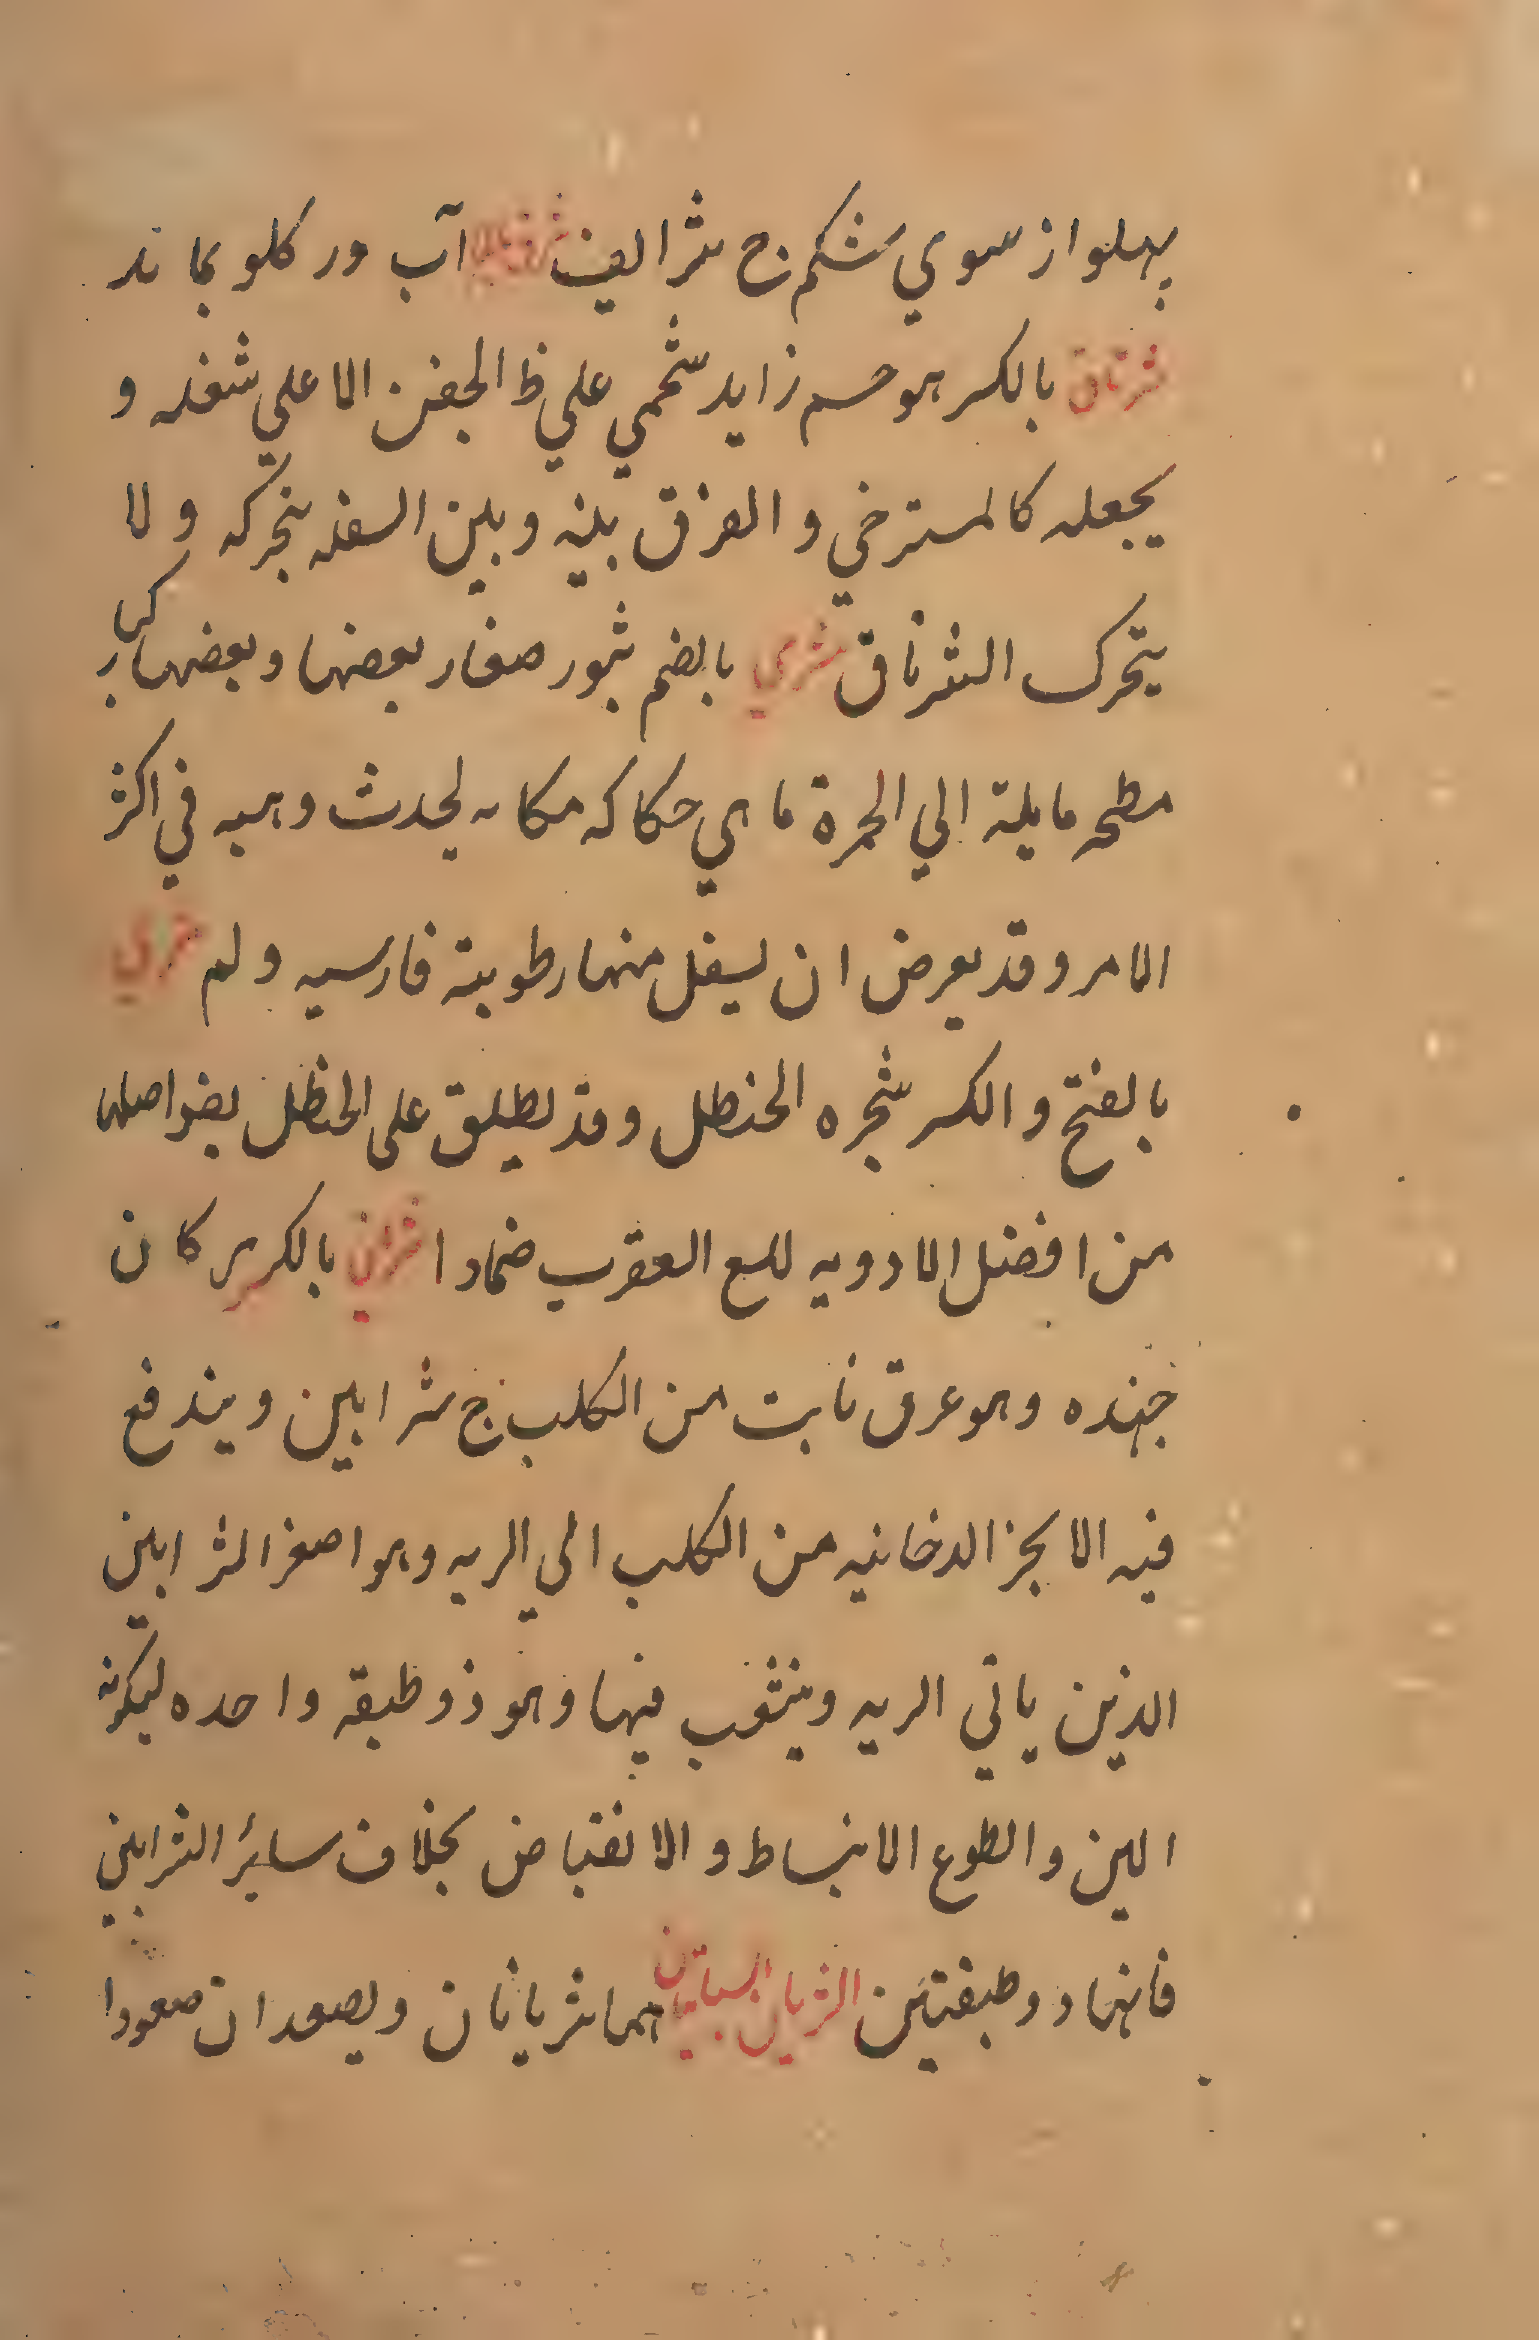 پهلو از سوي شكم ج شراليف شرقه آب در كلو بماند
شرناق بالكسر هو جسم زايد شحمي علي ظ الجفن الاعلي شغله و
يجعله كالمسترخي و الفرق بينه و بين السفله بتحركه و لا
يتحرك الشرناق شري بالضم بثور صغار بعضها و بعضها كبار
مطحه مايلة الي الحمرة ماي حكاكه مكانه لحدث وهيه في اكثر
الامر و قد يعرض ان يسفل منها رطوبته فارسيه و لم شري
بالفتح و الكسر شجره الحنطل و قد يطلق علي الحنظل بضو اصلها
من افضل الادويه للسع العقرب ضمادا شريان بالكسر رگان
جهنده و هو عرق نابت من الكلب ج شرابين و يندفع
فيه الابخر الدخانيه من الكلب الي الريه و هو اصغر الشرابين
الذين ياتي الريه و ينثقب فيها و هو ذو طبقه واحده ليكونه
اللين و الطوع الانبساط و الانقباض بخلاف سائر الشرابين
فانها ذو طبقتين الشريان السباتيان هما شريانان و يصعدان صعودا